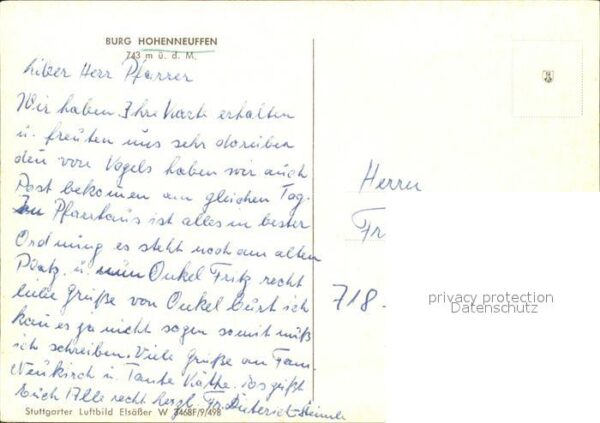 BURG HOHENNEUFFEN
743 m ü. d. M.
Lieber Herr Pfarrer
Wir haben Ihre Karte erhalten
u. freuten uns sehr darüber
den von Vogels haben wir auch
Post bekomen am gleichen Tag.
Im Pfarrhaus ist alles in bester
Ordnung es steht noch am alten
Platz. u. nun Onkel Fritz recht
liebe Grüße von Onkel Curt ich
kan es ja nicht sagen somit muß
ich schreiben. Viele Grüße an Fam.
Neukirch u. Tante Käthe. Es grüßt
Euch Alle recht herzl. Fr. Dieterich
Stuttgarter Luftbild Elsäßer W 3468F/9/498
Herrn
Fr
718.
privacy protection
Datenschutz